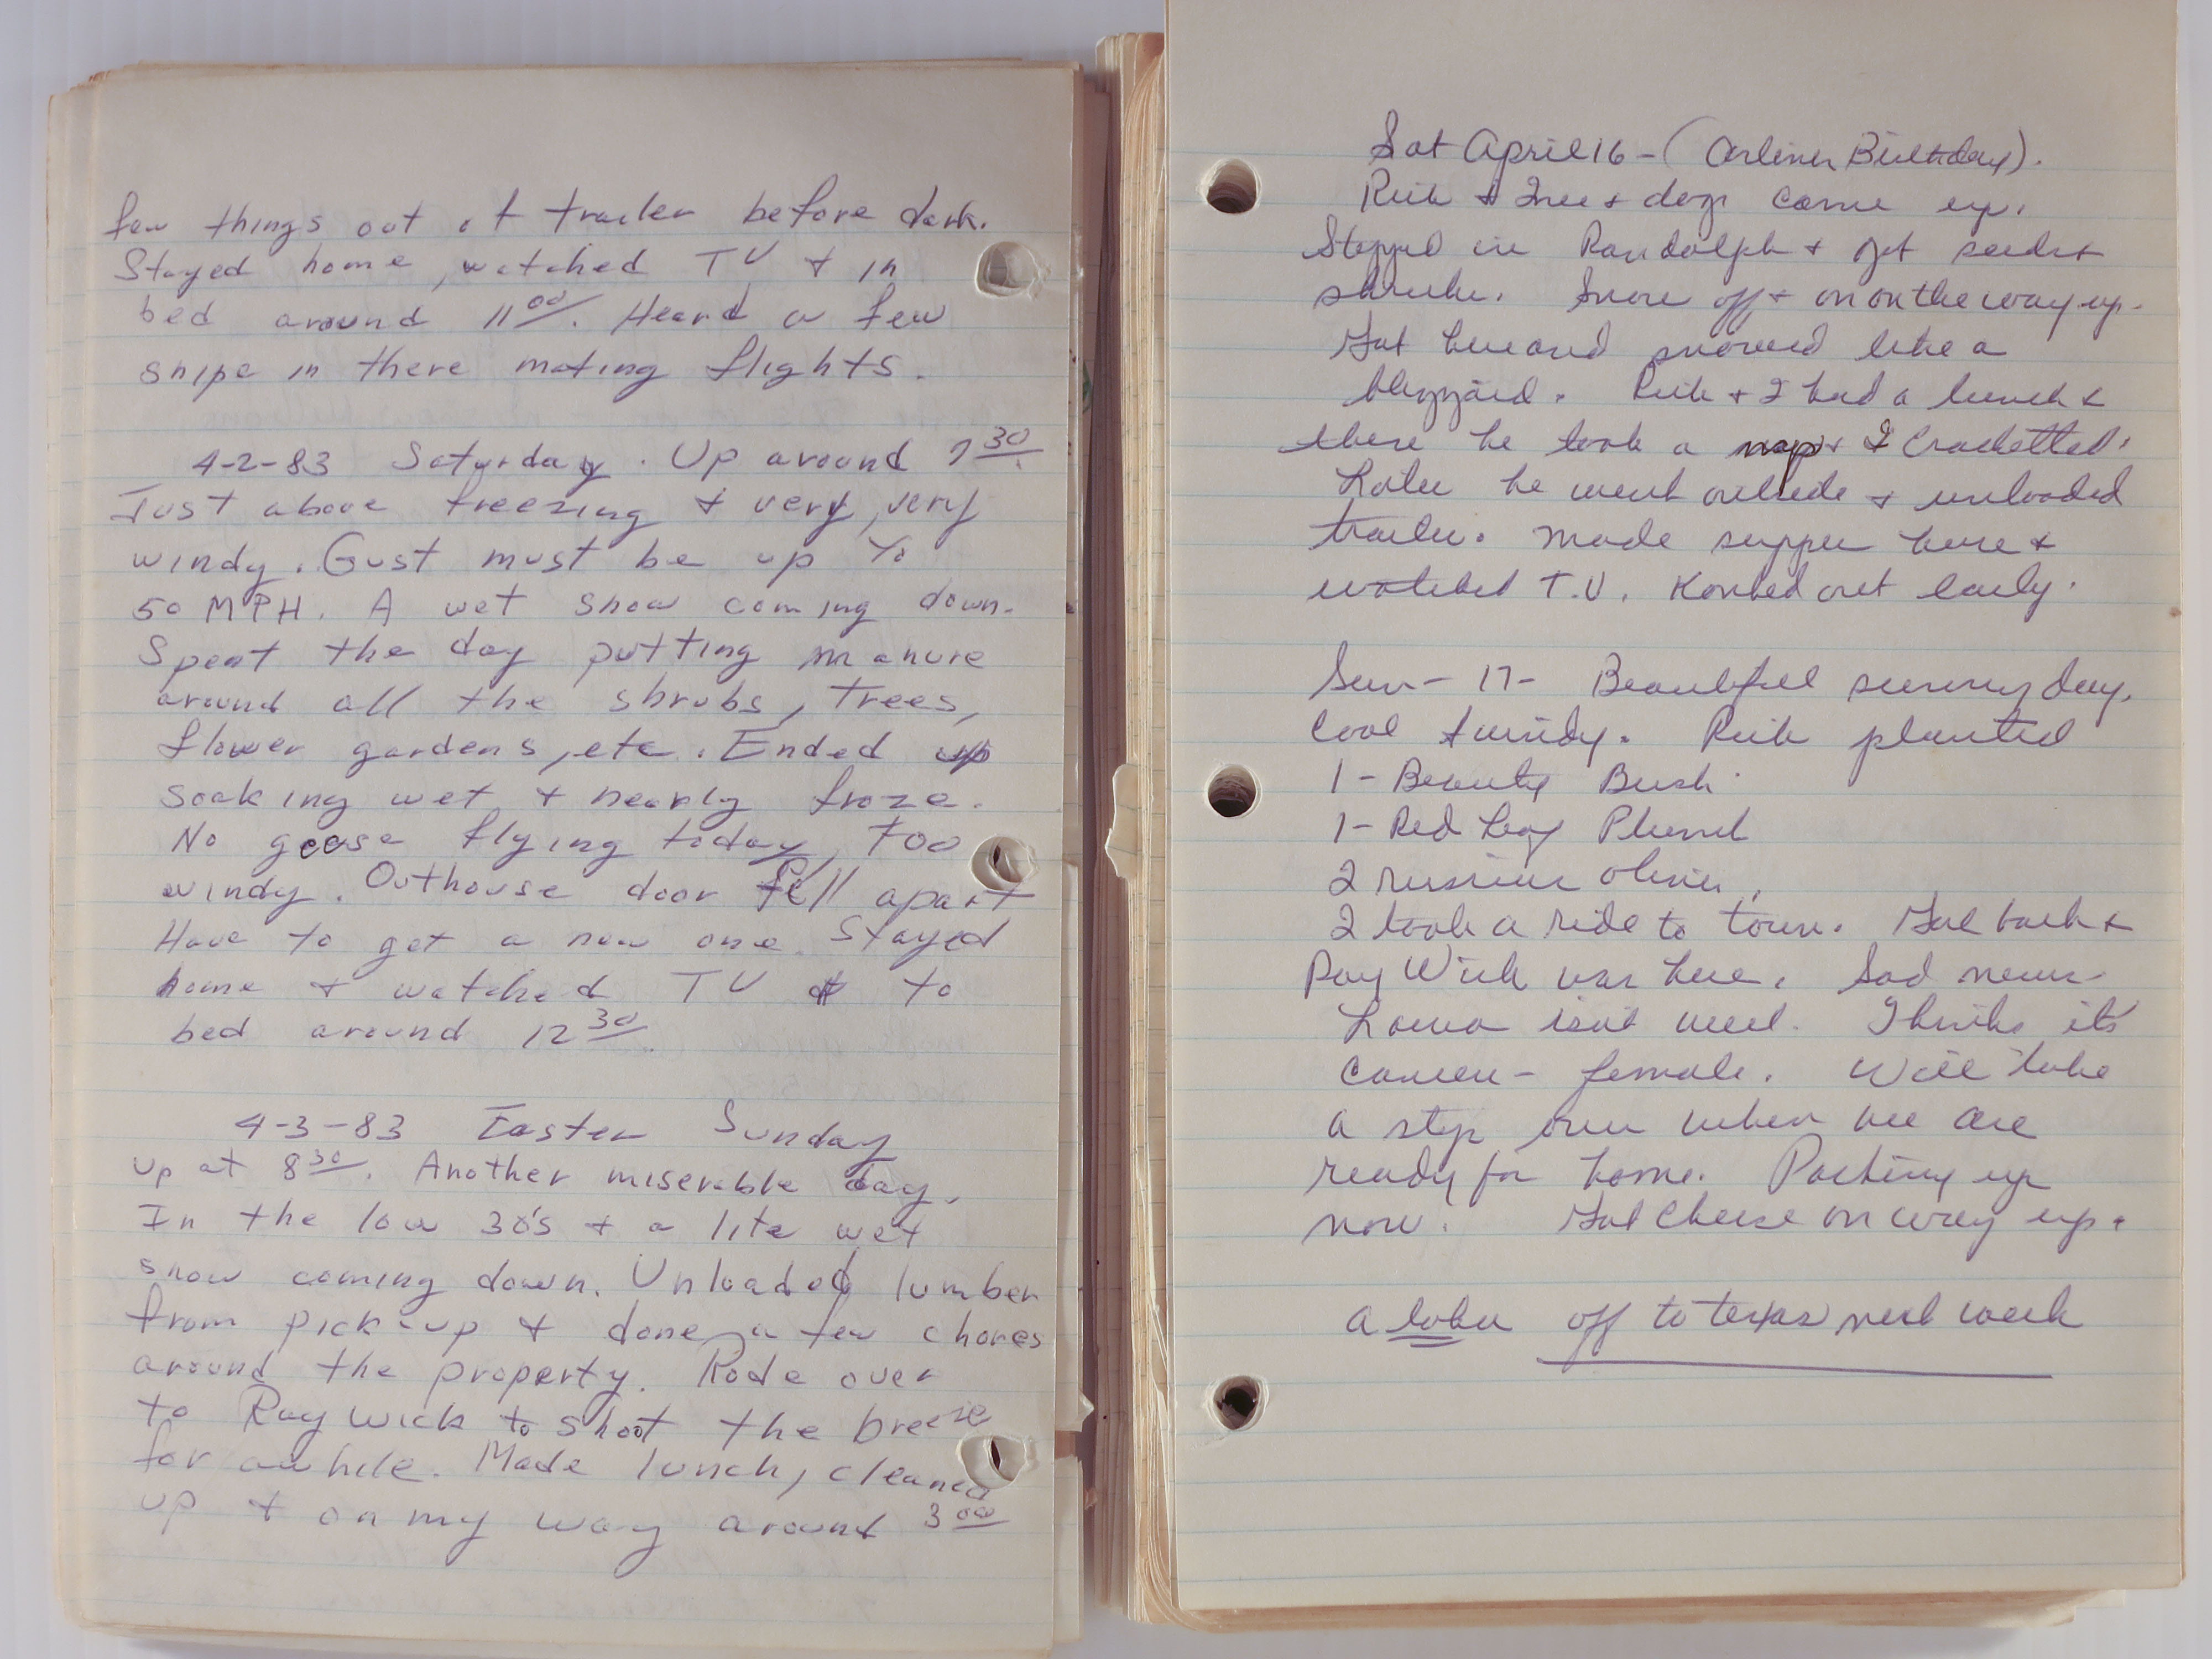 few things out of trailer before dark.
Stayed home, watched TV + in
bed around 11 00. Heard a few
snipe in there mating flights.
4-2-83 Saturday. Up around 7 30.
Just above freezing + very, very
windy. Gust must be up to
50 MPH. A wet snow coming down.
Spent the day putting manure
around all the shrubs, trees,
flower gardens, etc. Ended up
soaking wet + nearly froze.
No geese flying today, too
windy. Outhouse door fell apart
Have to get a new one. Stayed
home + watched TV + to
bed around 12 30.
4-3-83 Easter Sunday
Up at 8 30. Another miserable day.
In the low 30's + a lite wet
snow coming down. Unloaded lumber
from pick-up + done a few chores
around the property. Rode over
to Ray Wick to shoot the breeze
for awhile. Made lunch, cleaned
up + on my way around 3 00
Sat April 16 - (Arlines Birthday).
+ dogs came up.
Stopped in Randolph + got seeds +
shrubs. Snow off + on on the way up.
Got here and snowed like a
blizzard. + I had a lunch &
there he took a nap + I Crochetted.
Later he went outside + unloaded
trailer. Made supper here +
watched T.V. Konked out early.
Sun - 17 - Beautiful sunny day.
Cool + windy. planted
1 - Beauty Bush
1 - Red Leaf Plum
2 russian olives.
I took a ride to town. Got back +
Ray Wick was here. Sad news
isnt well. Thinks its
cancer - female. Will take
a stop over when we are
ready for home. Packing up
now. Got cheese on way up.
off to texas next week